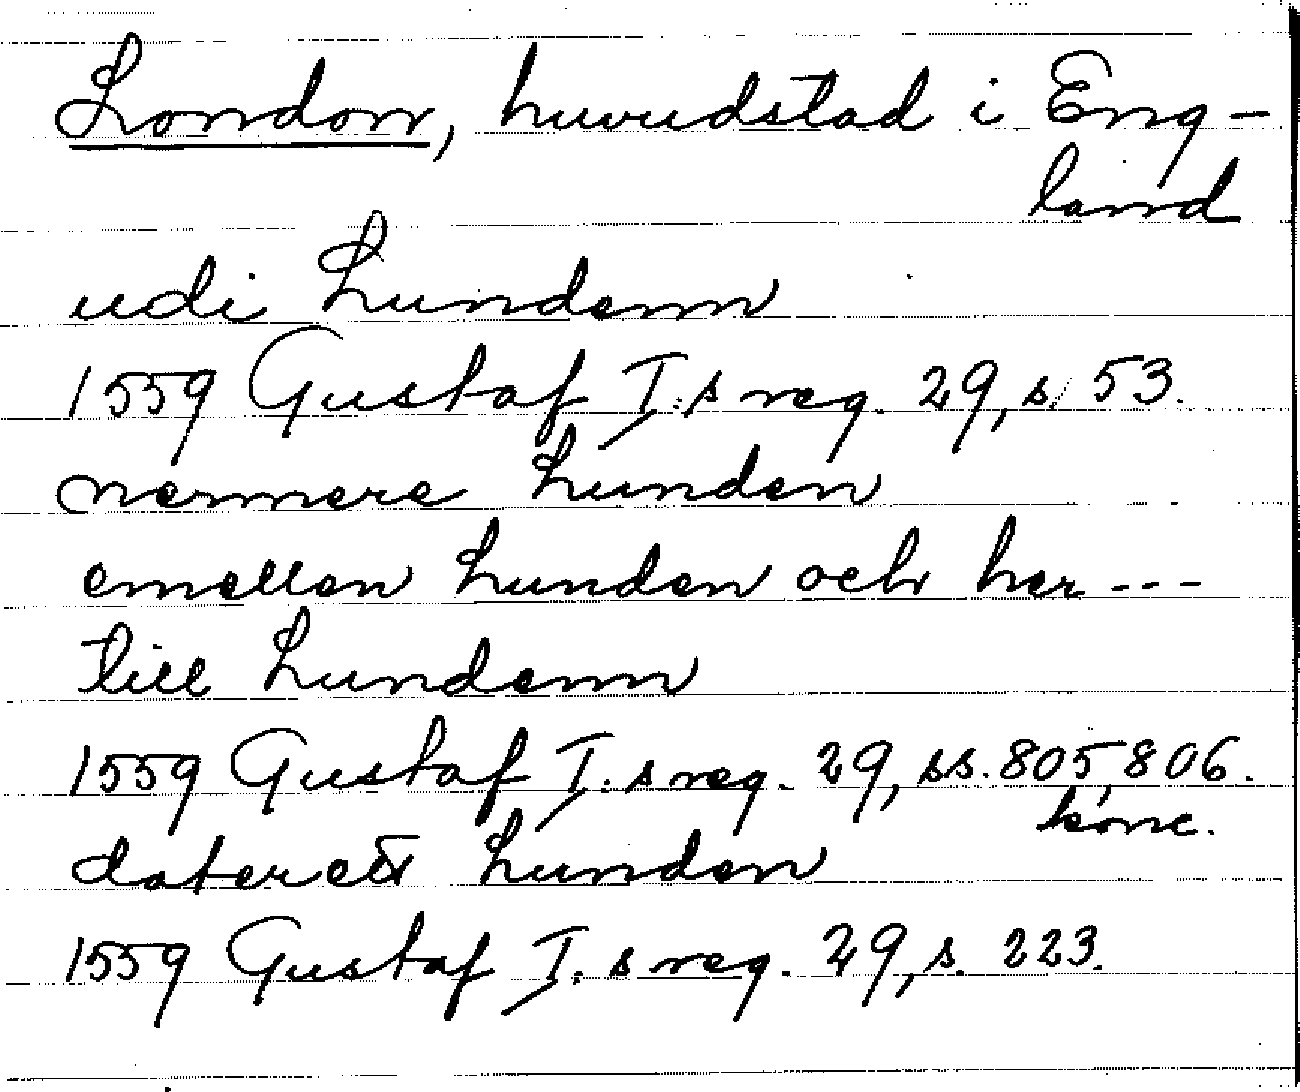 London, huvudstad i Eng-
land
udi Lundenn
1559 Gustaf I:s reg. 29, s. 53.
nermere Lunden
emellen Lunden och her ---
till Lundenn
1559 Gustaf I:s reg. 29, ss. 805, 806.
konc.
daterett Lunden
1559 Gustaf I:s reg. 29, s. 223.